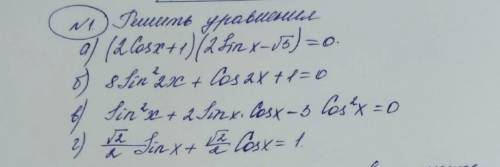 №1 Решить уравнения
а) (2Cosx+1)(2Sinx-√5)=0.
б) 8Sin²2x + Cos2x+1=0
в) Sin²x + 2Sinx·Cosx-3Cos²x=0
г) √2/2 Sinx + √2/2 Cosx=1.